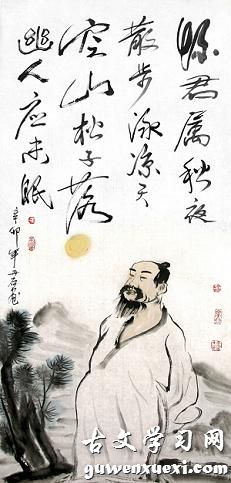 懷君属秋夜
散步咏凉天
空山松子落
幽人应未眠
辛卯年
古文学习网
guwenxuexi.com